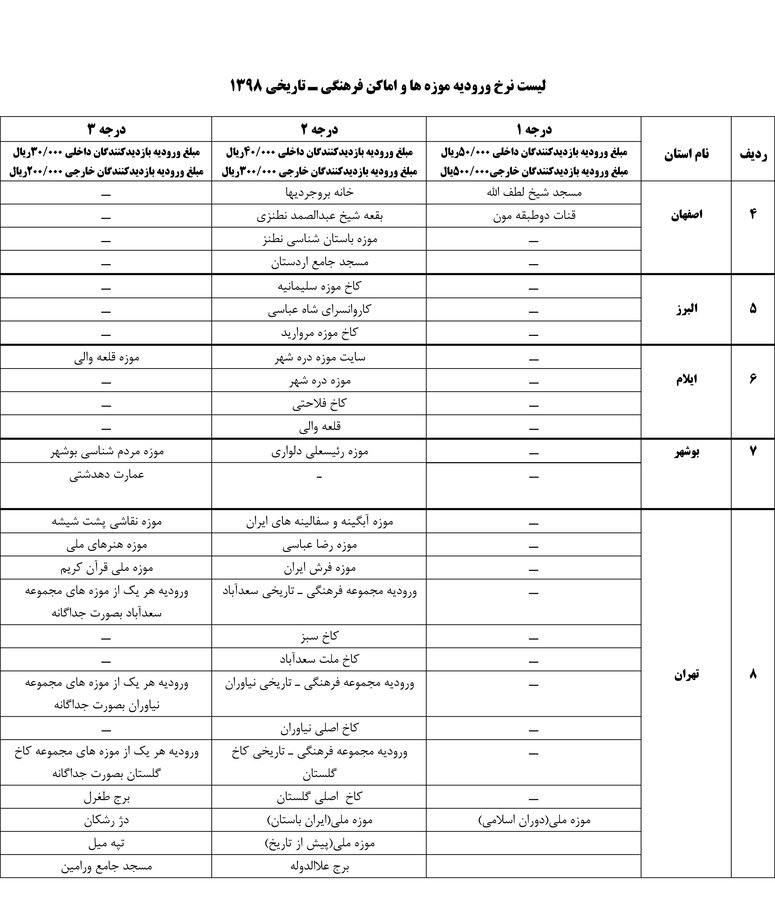 لیست نرخ ورودیه موزه ها و اماکن فرهنگی ـ تاریخی ۱۳۹۸
ردیف نام استان درجه ۱ درجه ۲ درجه ۳
مبلغ ورودیه بازدیدکنندگان داخلی ۵۰/۰۰۰ریال مبلغ ورودیه بازدیدکنندگان داخلی ۴۰/۰۰۰ریال مبلغ ورودیه بازدیدکنندگان داخلی ۳۰/۰۰۰ریال
مبلغ ورودیه بازدیدکنندگان خارجی۵۰۰/۰۰۰یال مبلغ ورودیه بازدیدکنندگان خارجی ۳۰۰/۰۰۰ریال مبلغ ورودیه بازدیدکنندگان خارجی ۲۰۰/۰۰۰ریال
۴ اصفهان مسجد شیخ لطف الله خانه بروجردیها ـ
قنات دوطبقه مون بقعه شیخ عبدالصمد نطنزی ـ
ـ موزه باستان شناسی نطنز ـ
ـ مسجد جامع اردستان ـ
۵ البرز ـ کاخ موزه سلیمانیه ـ
ـ کاروانسرای شاه عباسی ـ
ـ کاخ موزه مروارید ـ
۶ ایلام ـ سایت موزه دره شهر موزه قلعه والی
ـ موزه دره شهر ـ
ـ کاخ فلاحتی ـ
ـ قلعه والی ـ
۷ بوشهر ـ موزه رئیسعلی دلواری موزه مردم شناسی بوشهر
ـ - عمارت دهدشتی
۸ تهران ـ موزه آبگینه و سفالینه های ایران موزه نقاشی پشت شیشه
ـ موزه رضا عباسی موزه هنرهای ملی
ـ موزه فرش ایران موزه ملی قرآن کریم
ـ ورودیه مجموعه فرهنگی ـ تاریخی سعدآباد ورودیه هر یک از موزه های مجموعه
سعدآباد بصورت جداگانه
ـ کاخ سبز ـ
ـ کاخ ملت سعدآباد
ـ ورودیه مجموعه فرهنگی ـ تاریخی نیاوران ورودیه هر یک از موزه های مجموعه
نیاوران بصورت جداگانه
ـ کاخ اصلی نیاوران ـ
ـ ورودیه مجموعه فرهنگی ـ تاریخی کاخ ورودیه هر یک از موزه های مجموعه کاخ
گلستان گلستان بصورت جداگانه
ـ کاخ اصلی گلستان برج طغرل
موزه ملی(دوران اسلامی) موزه ملی(ایران باستان) دژ رشکان
موزه ملی(پیش از تاریخ) تپه میل
برج علاالدوله مسجد جامع ورامین